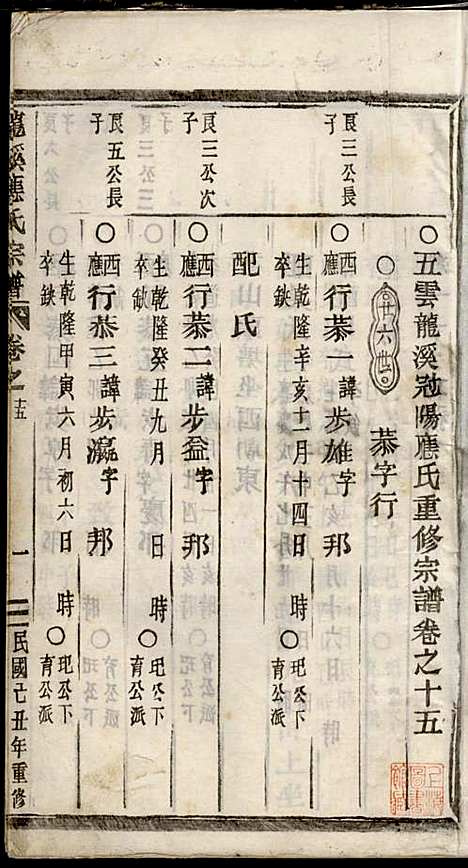 五雲龍溪冠陽應氏重修宗譜卷之十五
廿六世 恭字行
良三公長子
西應 行恭一諱步雄字 邦
生乾隆辛亥十二月十四日 時
卒缺
圯公下育公派
良三公次子
西應 行恭二諱步盈字 邦
生乾隆癸丑九月 日 時
卒缺
圯公下育公派
配山氏
良五公長子
西應 行恭三諱步瀛字 邦
生乾隆甲寅六月初六日 時
卒缺
圯公下育公派
龍溪應氏宗譜 卷之十五 一 民國己丑年重修